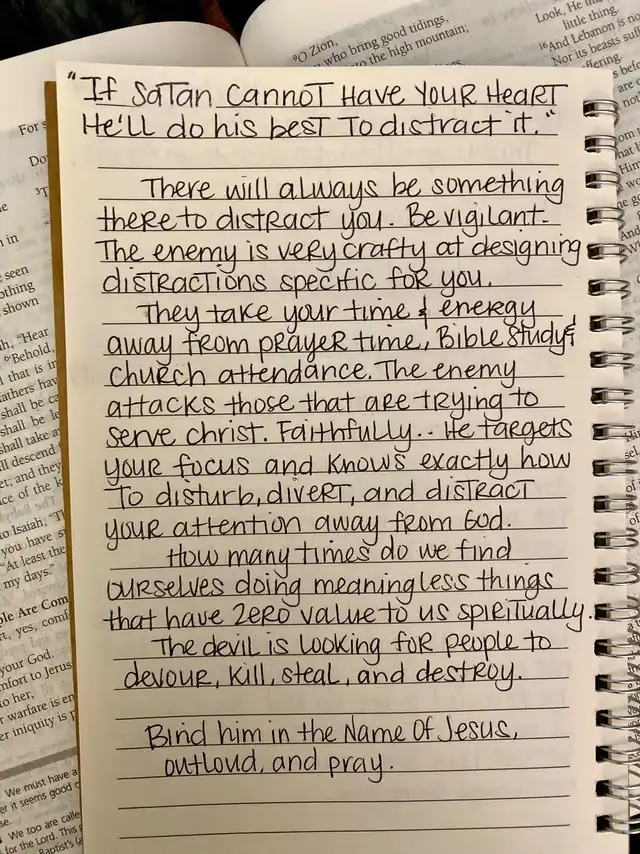 "If Satan cannot have your heart
He'll do his best to distract it."
There will always be something
there to distract you. Be vigilant.
The enemy is very crafty at designing
distractions specific for you.
They take your time & energy
away from prayer time, Bible Study &
church attendance. The enemy
attacks those that are trying to
serve christ. Faithfully.. He targets
your focus and knows exactly how
to disturb, divert, and distract
your attention away from God.
How many times do we find
ourselves doing meaningless things
that have zero value to us spiritually.
The devil is looking for people to
devour, kill, steal, and destroy.
Bind him in the Name Of Jesus,
outloud, and pray.
9O Zion,
who bring good tidings,
to the high mountain;
Look, He
little thing.
16And Lebanon is no
Nor its beasts suf
ffering.
For s
Do
in
seen
othing
shown
ah, "Hear
6"Behold,
that is in
fathers hav
shall be ca
shall be le
shall take a
ll descend
et; and they
ce of the k
to Isaiah, "T
you have s
"At least the
my days."
ple Are Com
rt, yes, com
your God.
mfort to Jerus
to her,
r warfare is en
er iniquity is p
We must have a
er it seems good
se.
We too are calle
for the Lord. This
Baptist's (a